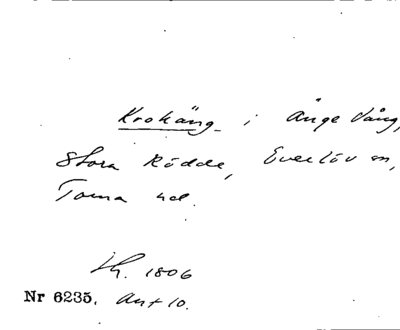 Krokäng i Änge Vång,
Stora Rödde, Everlöv sn,
Torna hd.
Lh. 1806
Nr 6235. Akt 10.